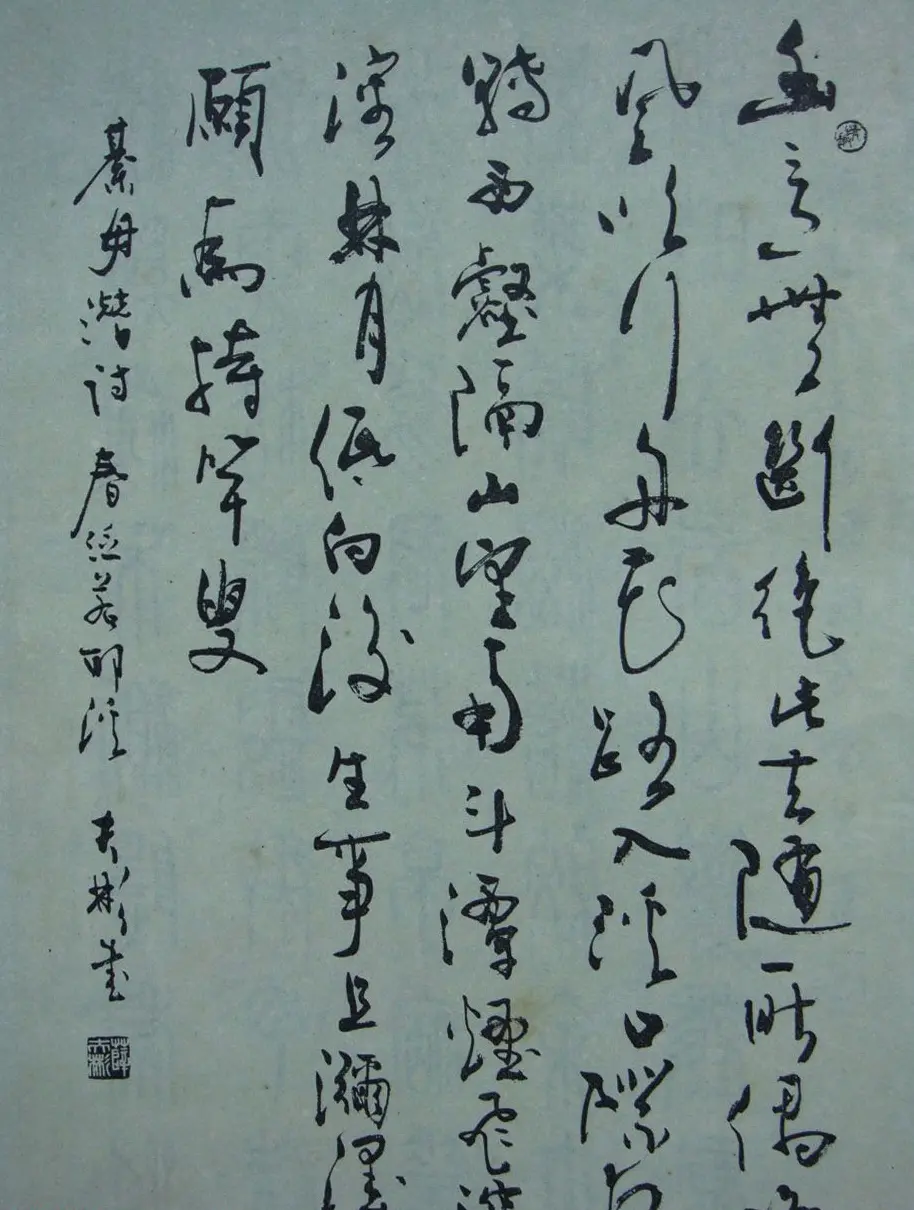 幽意無斷絕此去隨所偶
風吹行舟花路入溪口際夜
轉西壑隔山望南斗潭煙飛
溶林月低向後生事且瀰漫
願為持竿叟
綦毋潛詩 春泛若耶溪 夫彬書
薛夫彬